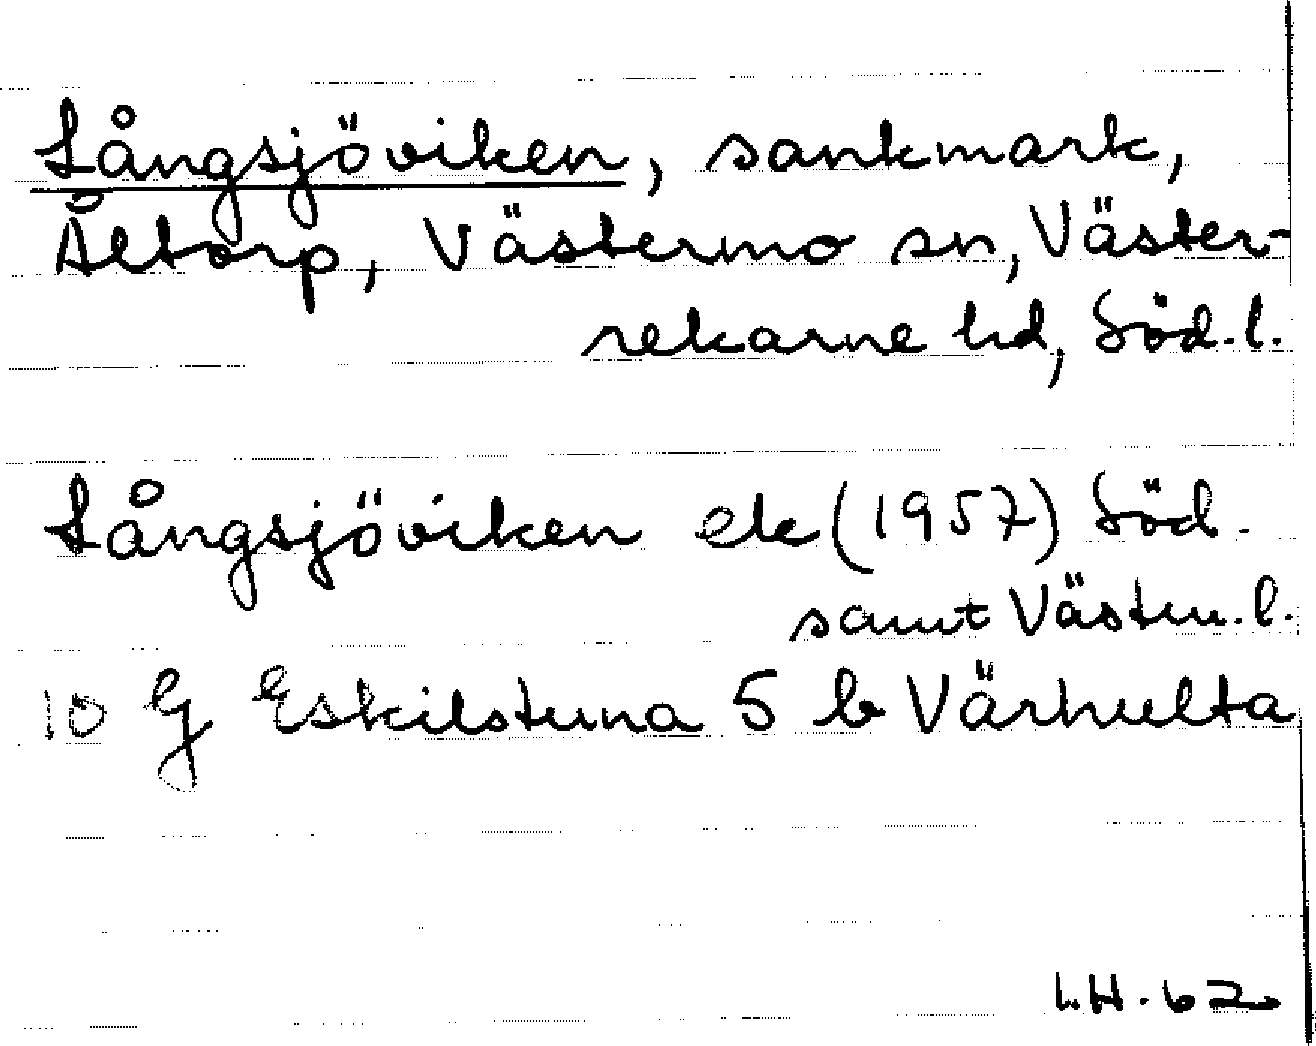 Långsjöviken, sankmark,
Åltorp, Västermo sn, Väster-
rekarne hd, Söd.l.
Långsjöviken ek (1957) Söd.
samt Västm.l.
10 G Eskilstuna 5 b Värhulta
I.H. 62